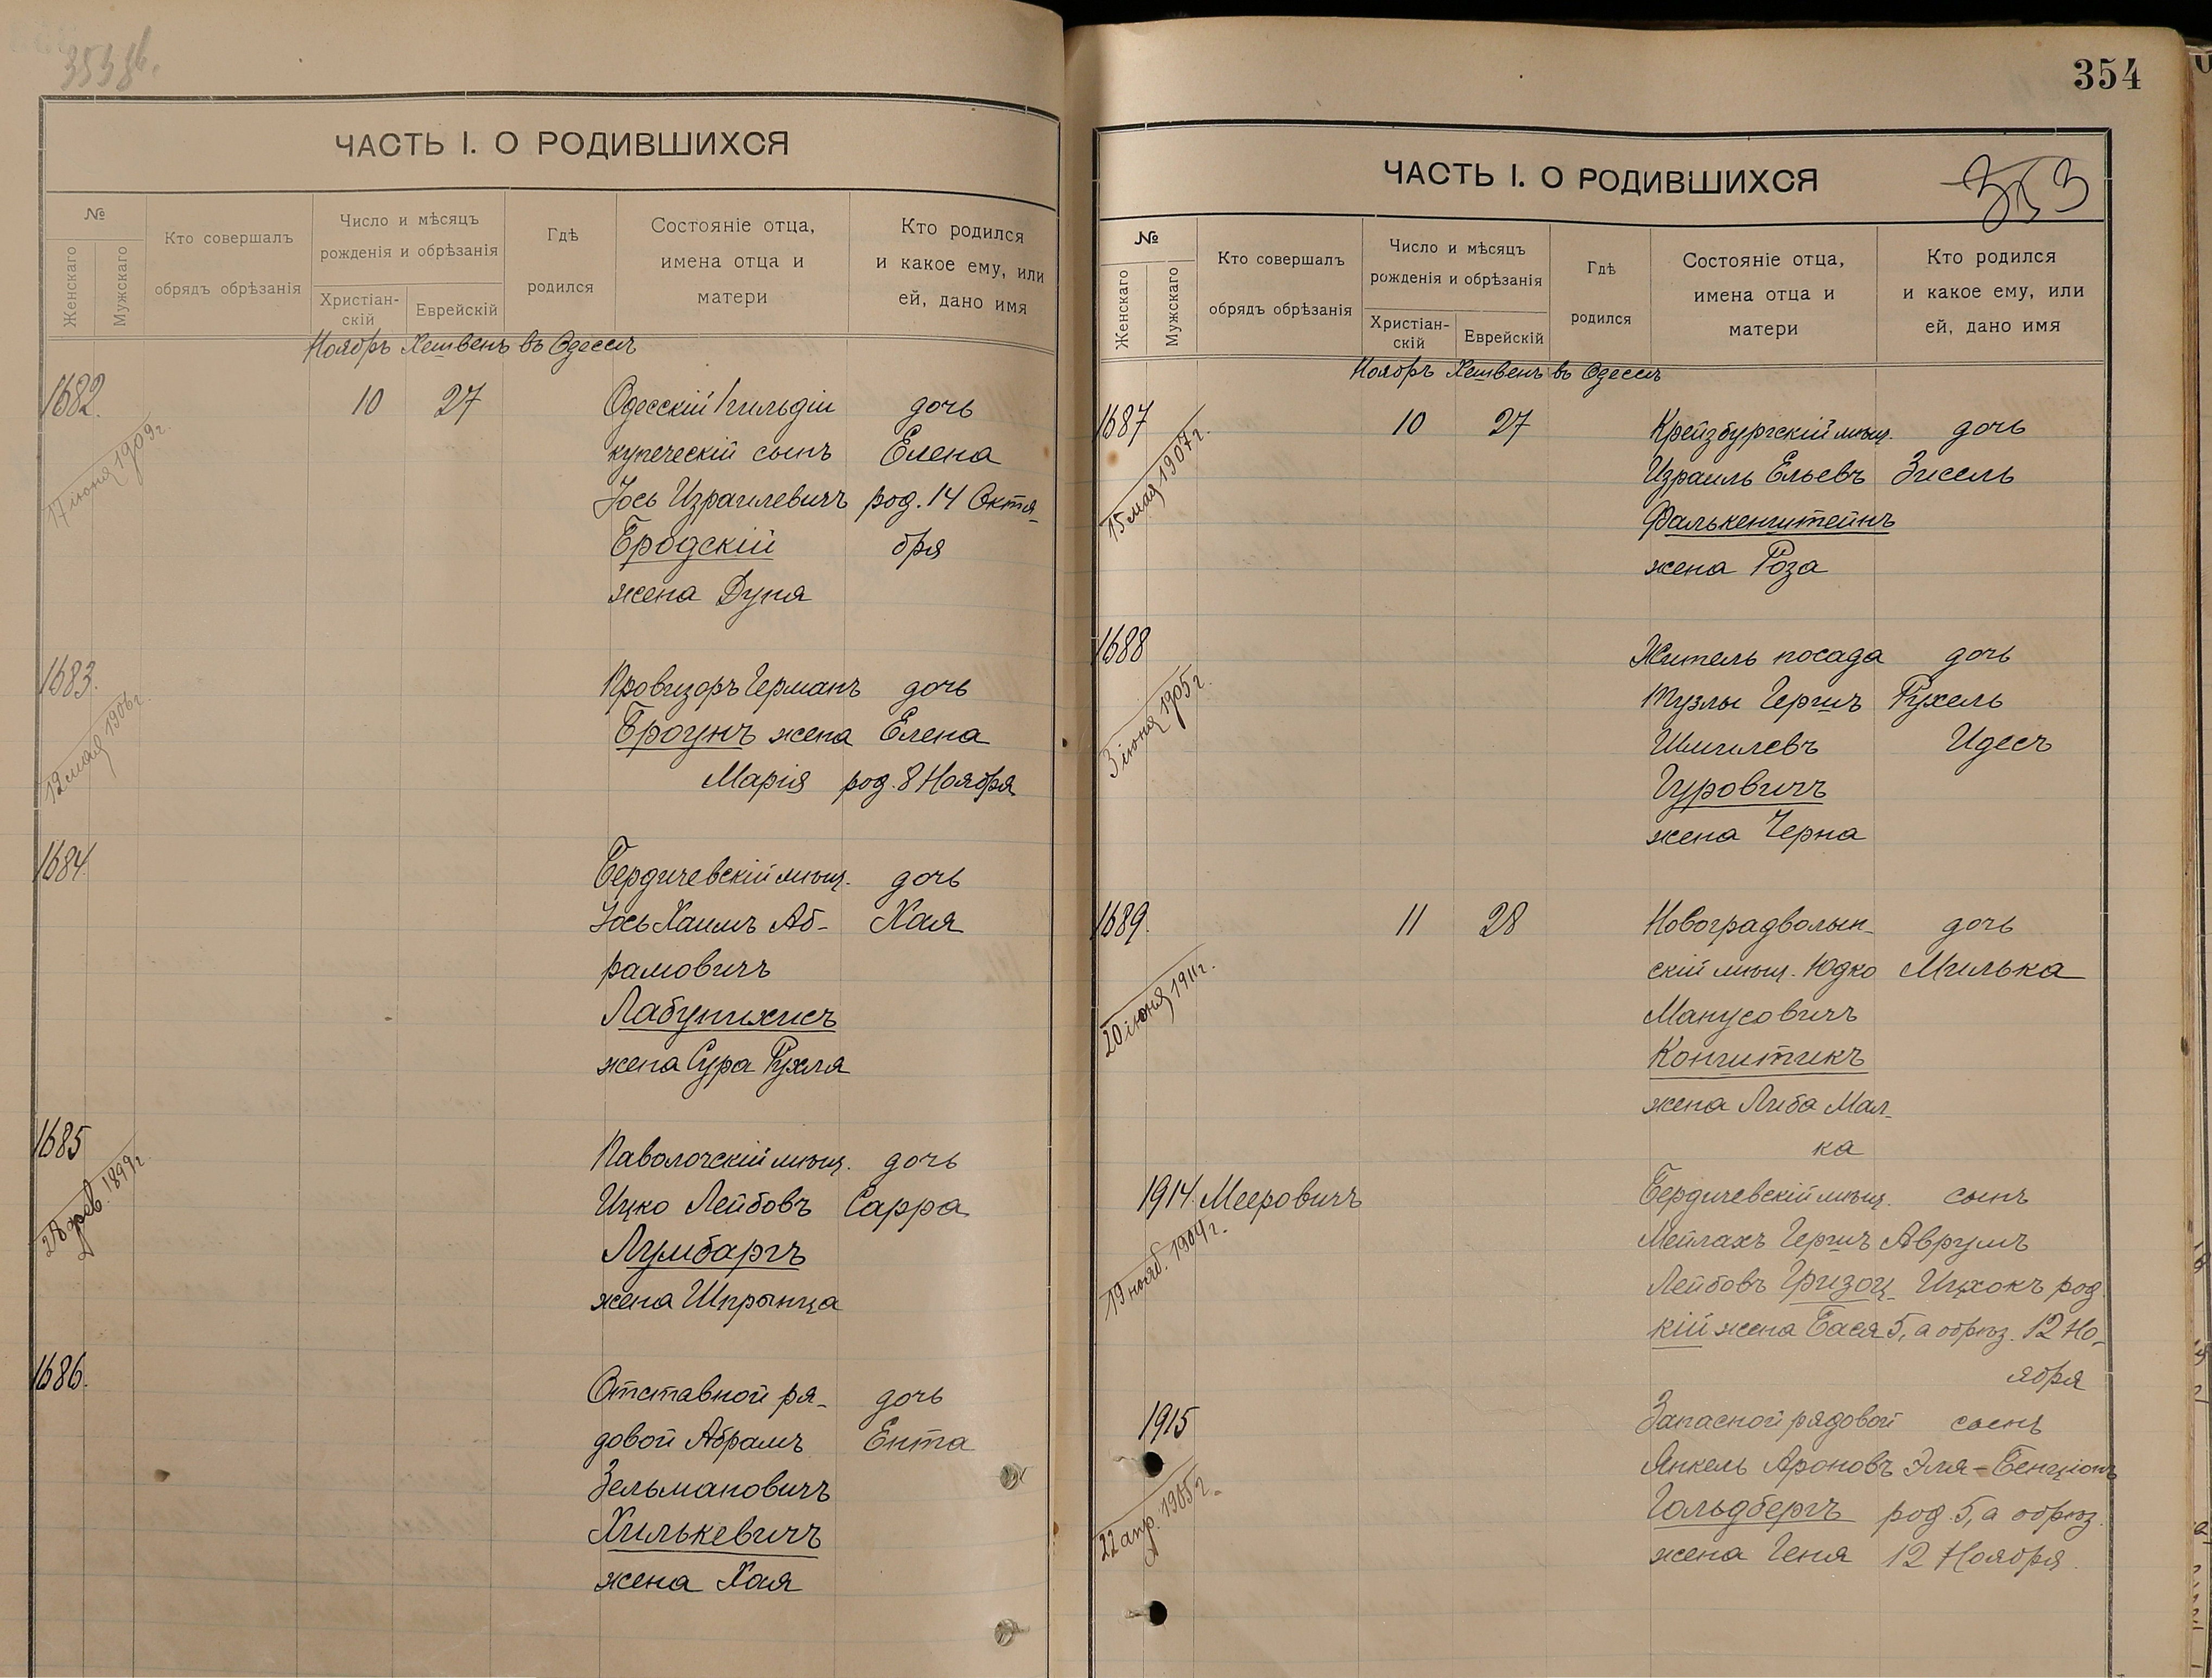 353 об.
ЧАСТЬ I. О РОДИВШИХСЯ
№
Женскаго
Мужскаго
Кто совершалъ
обрядъ обрѣзанія
Число и мѣсяцъ
рожденія и обрѣзанія
Христіан-
скій
Еврейскій
Гдѣ
родился
Состояніе отца,
имена отца и
матери
Кто родился
и какое ему, или
ей, дано имя
Ноябрь Хешвенъ въ Одессѣ
1682. 10 27 Одесскій гильдіи дочь
17 іюня 1909 г.
купеческій сынъ Елена
Іось Израилевичъ род. 14 Октя-
Бродскій бря
жена Дуня
1683. Провизоръ Германъ дочь
12 мая 1906 г.
Броунъ жена Елена
Марія род. 8 Ноября
1684. Бердичевскій мѣщ. дочь
Іось Хаимъ Аб- Хая
рамовичъ
Лабунихисъ
жена Сура Рухля
1685 Паволочскій мѣщ. дочь
28 фев. 1899 г.
Ицко Лейбовъ Сарра
Лумбаргъ
жена Шпрынца
1686. Отставной ря- дочь
довой Абрамъ Ента
Зельмановичъ
Хилькевичъ
жена Хая
354
ЧАСТЬ I. О РОДИВШИХСЯ
353
№
Женскаго
Мужскаго
Кто совершалъ
обрядъ обрѣзанія
Число и мѣсяцъ
рожденія и обрѣзанія
Христіан-
скій
Еврейскій
Гдѣ
родился
Состояніе отца,
имена отца и
матери
Кто родился
и какое ему, или
ей, дано имя
Ноябрь Хешвенъ въ Одессѣ
1687 10 27 Крейзбургскій мѣщ. дочь
15 мая 1907 г.
Израиль Ельевъ Зисель
Фалькенштейнъ
жена Роза
1688 Житель посада дочь
3 іюня 1905 г.
Тузлы Гершъ Рухель
Шмилевъ Идесъ
Гуровичъ
жена Черна
1689. 11 28 Новоградволын- дочь
20 іюня 1911 г.
скій мѣщ. Юдко Милька
Манусовичъ
Конштикъ
жена Либа Мал-
ка
1914. Мееровичъ Бердичевскій мѣщ. сынъ
19 нояб. 1904 г.
Мейлахъ Гершъ Аврумъ
Лейбовъ Гризоц- Ицхокъ род.
кій жена Бася 5, а обрѣз. 12 Но-
ября
1915 Запасной рядовой сынъ
22 апр. 1905 г.
Янкель Ароновъ Эля-Бенціонъ
Гольдбергъ род. 5, а обрѣз.
жена Геня 12 Ноября.